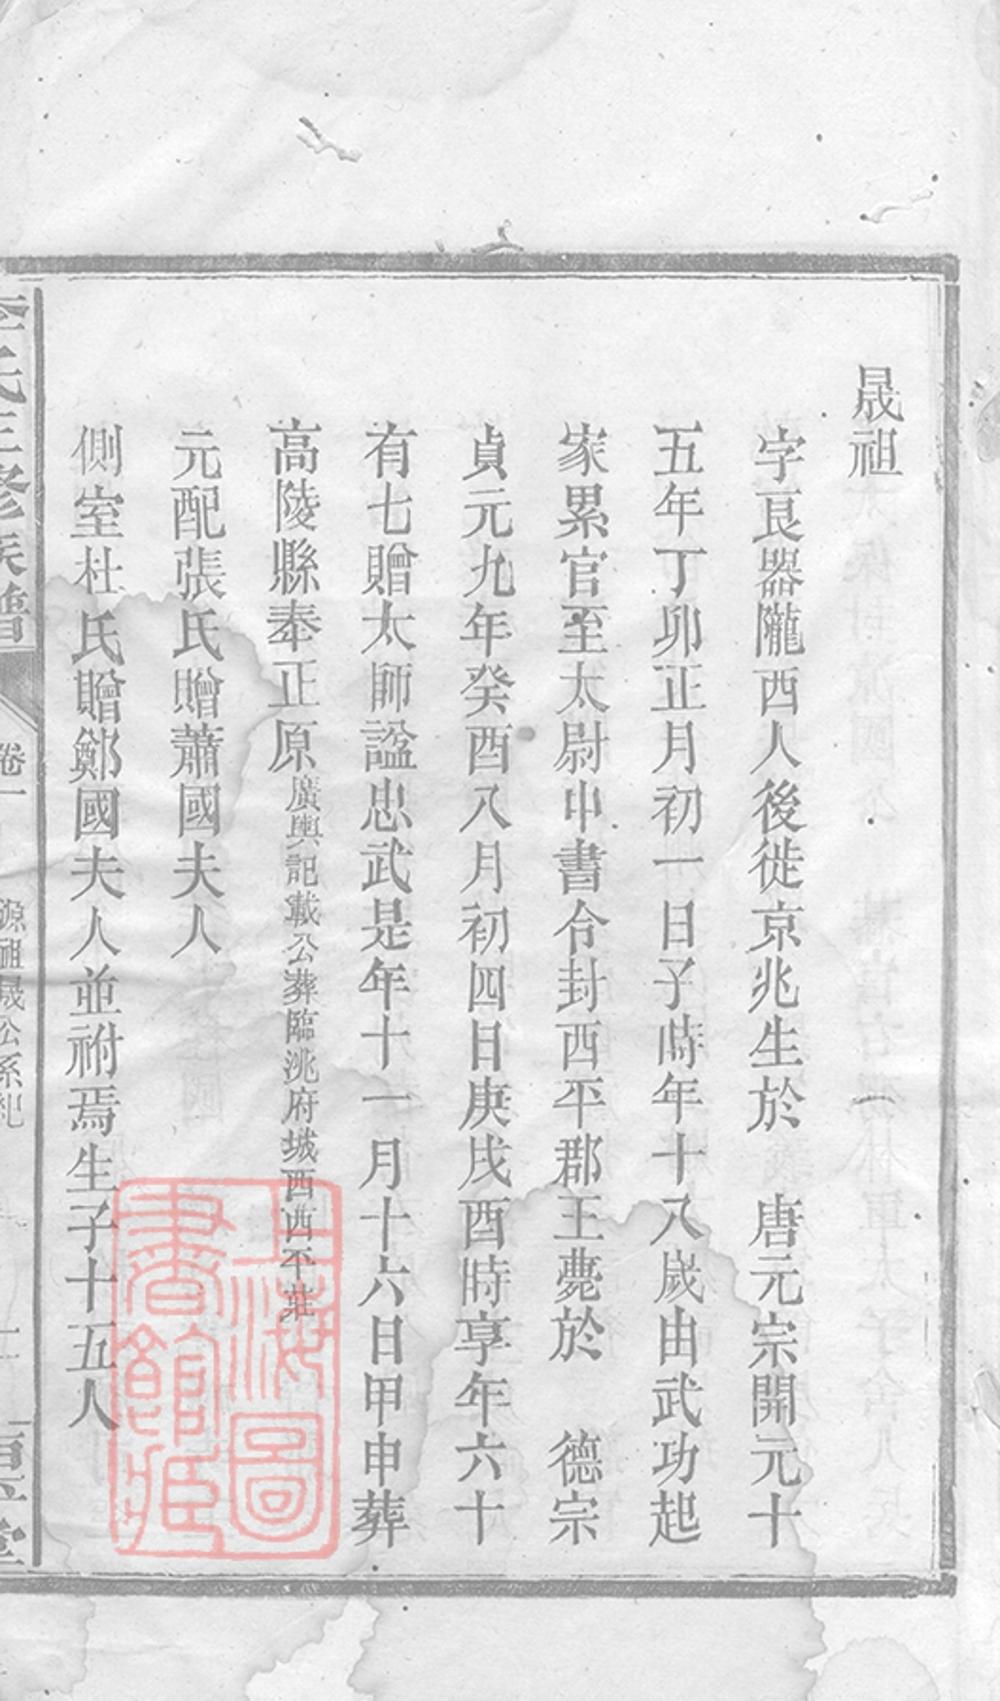 晟祖
字良器隴西人後徙京兆生於　唐元宗開元十
五年丁卯正月初一日子時年十八歲由武功起
家累官至太尉中書令封西平郡王薨於　德宗
貞元九年癸酉八月初四日庚戌酉時享年六十
有七贈太師諡忠武是年十一月十六日甲申葬
高陵縣奉正原廣輿記載公葬臨洮府城西西平莊
元配張氏贈蕭國夫人
側室杜氏贈鄭國夫人並祔焉生子十五人
李氏三修族譜
卷一
源祖晟公系紀
上海圖書館藏